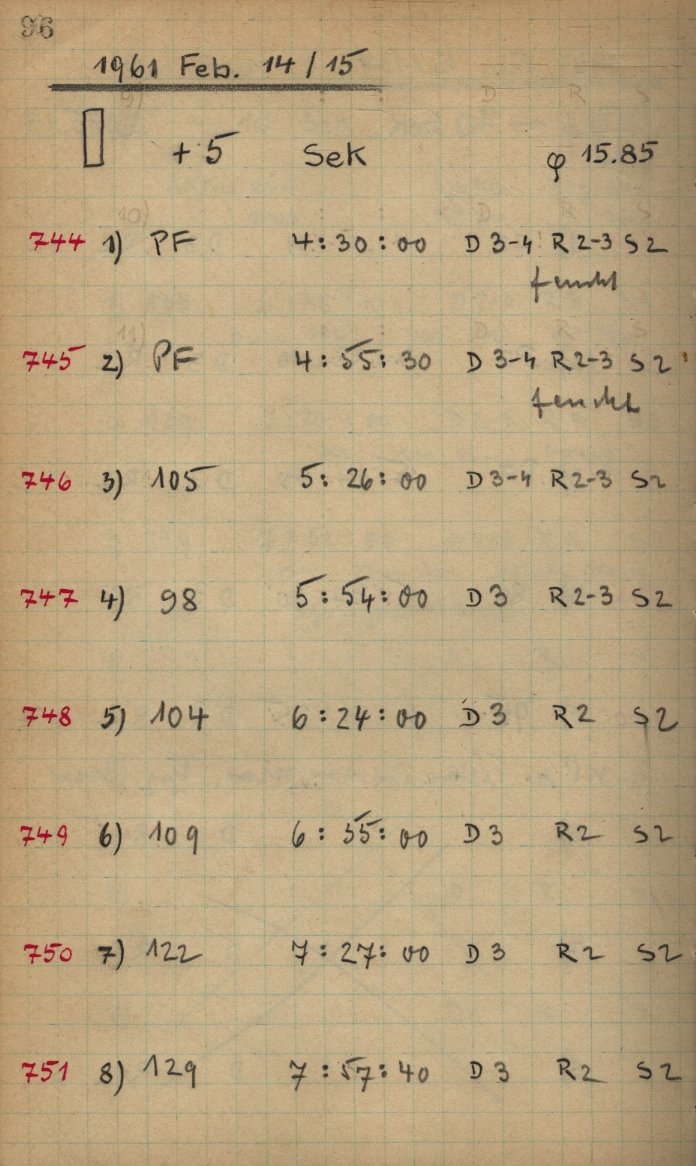 96
1961 Feb. 14/15
+5 Sek φ 15.85
744 1) PF 4:30:00 D 3-4 R 2-3 S 2
feucht
745 2) PF 4:55:30 D 3-4 R 2-3 S 2
feucht
746 3) 105 5:26:00 D 3-4 R 2-3 S 2
747 4) 98 5:54:00 D 3 R 2-3 S 2
748 5) 104 6:24:00 D 3 R 2 S 2
749 6) 109 6:55:00 D 3 R 2 S 2
750 7) 122 7:27:00 D 3 R 2 S 2
751 8) 129 7:57:40 D 3 R 2 S 2